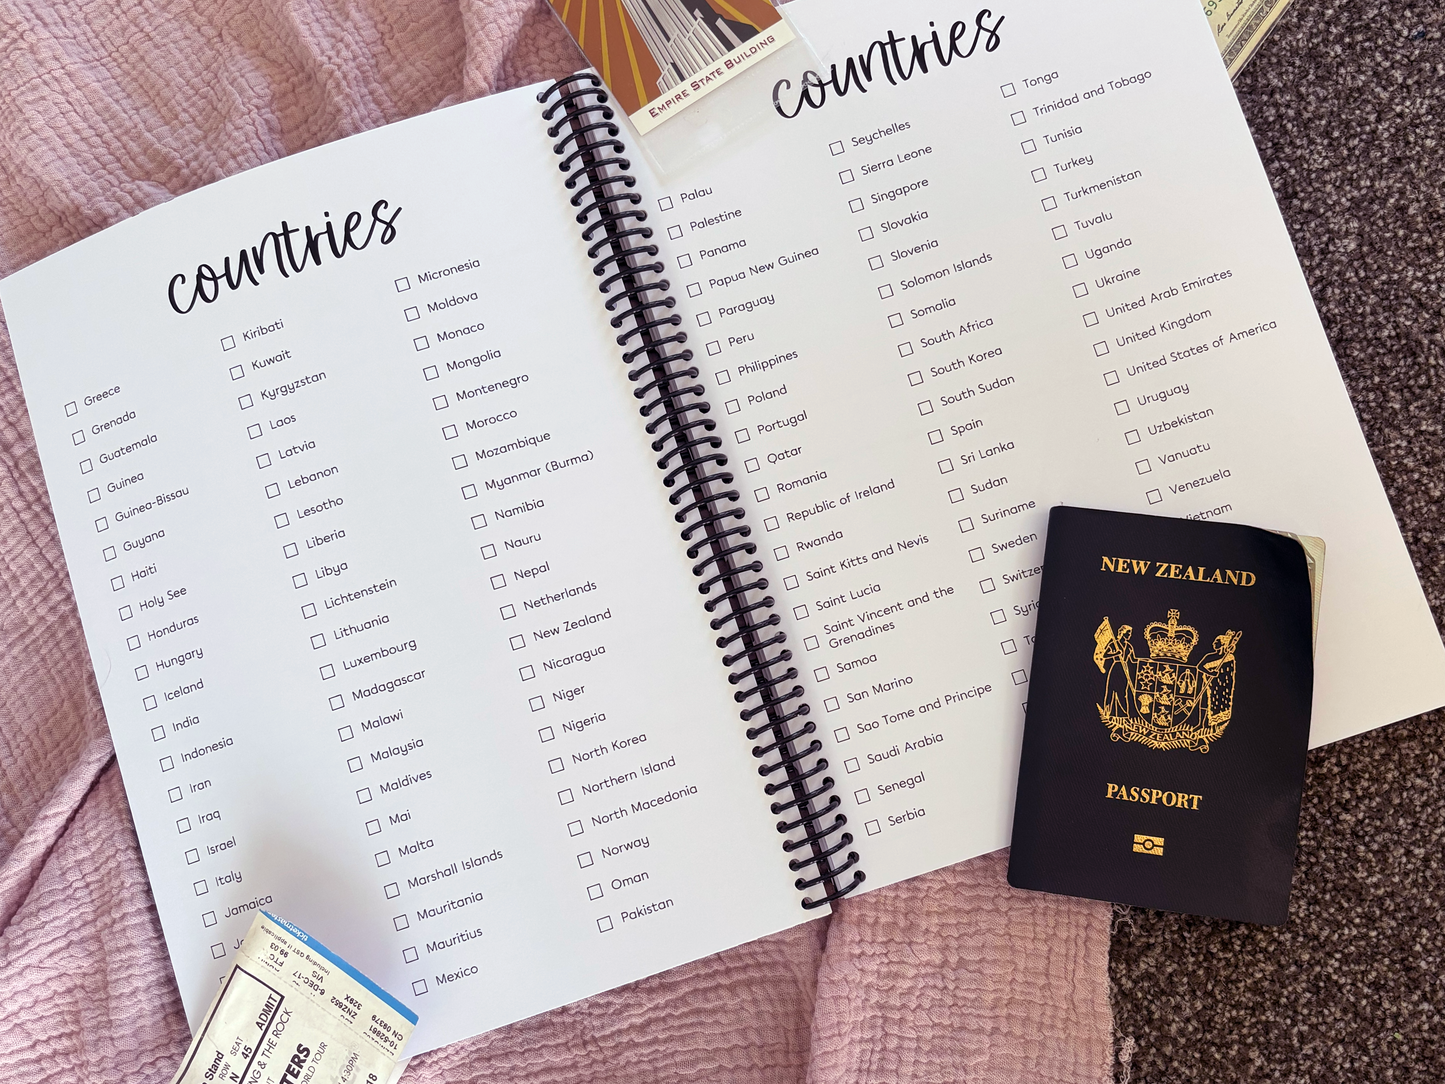 EMPIRE STATE BUILDING
countries
Greece
Grenada
Guatemala
Guinea
Guinea-Bissau
Guyana
Haiti
Holy See
Honduras
Hungary
Iceland
India
Indonesia
Iran
Iraq
Israel
Italy
Jamaica
Kiribati
Kuwait
Kyrgyzstan
Laos
Latvia
Lebanon
Lesotho
Liberia
Libya
Lichtenstein
Lithuania
Luxembourg
Madagascar
Malawi
Malaysia
Maldives
Mai
Malta
Marshall Islands
Mauritania
Mauritius
Mexico
Micronesia
Moldova
Monaco
Mongolia
Montenegro
Morocco
Mozambique
Myanmar (Burma)
Namibia
Nauru
Nepal
Netherlands
New Zealand
Nicaragua
Niger
Nigeria
North Korea
Northern Island
North Macedonia
Norway
Oman
Pakistan
countries
Palau
Palestine
Panama
Papua New Guinea
Paraguay
Peru
Philippines
Poland
Portugal
Qatar
Romania
Republic of Ireland
Rwanda
Saint Kitts and Nevis
Saint Lucia
Saint Vincent and the
Grenadines
Samoa
San Marino
Sao Tome and Principe
Saudi Arabia
Senegal
Serbia
Seychelles
Sierra Leone
Singapore
Slovakia
Slovenia
Solomon Islands
Somalia
South Africa
South Korea
South Sudan
Spain
Sri Lanka
Sudan
Suriname
Sweden
Switzer
Syri
Tonga
Trinidad and Tobago
Tunisia
Turkey
Turkmenistan
Tuvalu
Uganda
Ukraine
United Arab Emirates
United Kingdom
United States of America
Uruguay
Uzbekistan
Vanuatu
Venezuela
ietnam
NEW ZEALAND
NEW ZEALAND
PASSPORT
ticketmaster
including GST if applicable
99.03
FTC
VIS
6-DEC-17
329X
ZNZ652
10-52861
CN 08379
ADMIT
Stand
ROW SEAT
N 45
NG & THE ROCK
TERS
ORLD TOUR
4:30PM
18